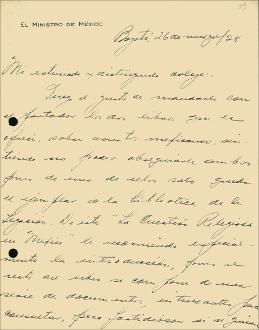 EL MINISTRO DE MÉXICO
Bogotá, 26 de marzo/28
Mi estimado y distinguido colega:-
Tengo el gusto de mandarle con
el portador los dos libros que le
ofrecí, sobre asuntos mexicanos, sin-
tiendo no poder obsequiarle ambos
pues de uno de ellos sólo queda
el ejemplar de la biblioteca de la
Legación. De éste "La Cuestión Religiosa
en México" le recomiendo especial-
mente la introducción, pues el
resto del libro se compone de una
serie de documentos, interesantes para
consultar, pero fastidiosos si se quieren